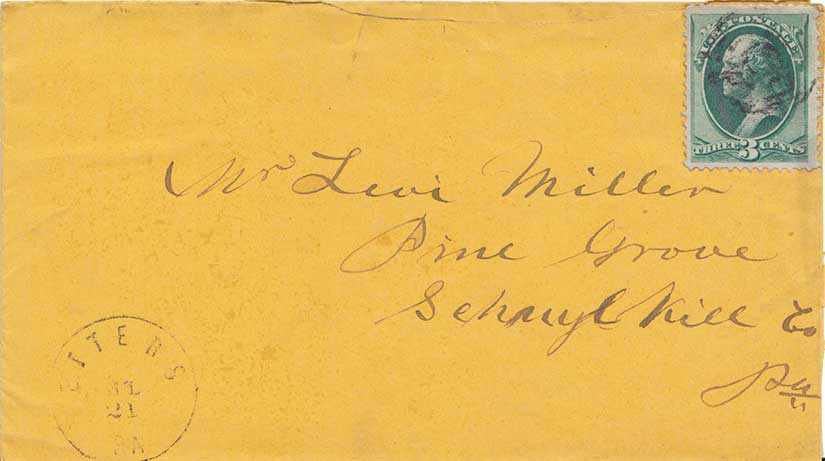 U.S. POSTAGE
THREE 3 CENTS
Mr Levi Miller
Pine Grove
Schuyl Kill Co
Pa
ETTERS
21
PA